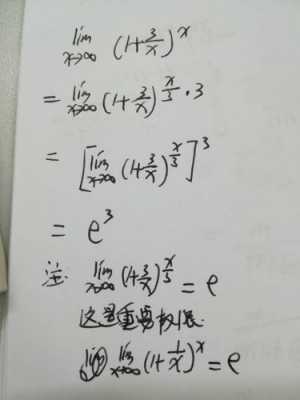 lim x→∞ (1+3/x)^x
= lim x→∞ (1+3/x)^(x/3 · 3)
= [lim x→∞ (1+3/x)^(x/3)]^3
= e^3
注: lim x→∞ (1+3/x)^(x/3) = e
这里重要极限
lim x→∞ (1+1/x)^x = e